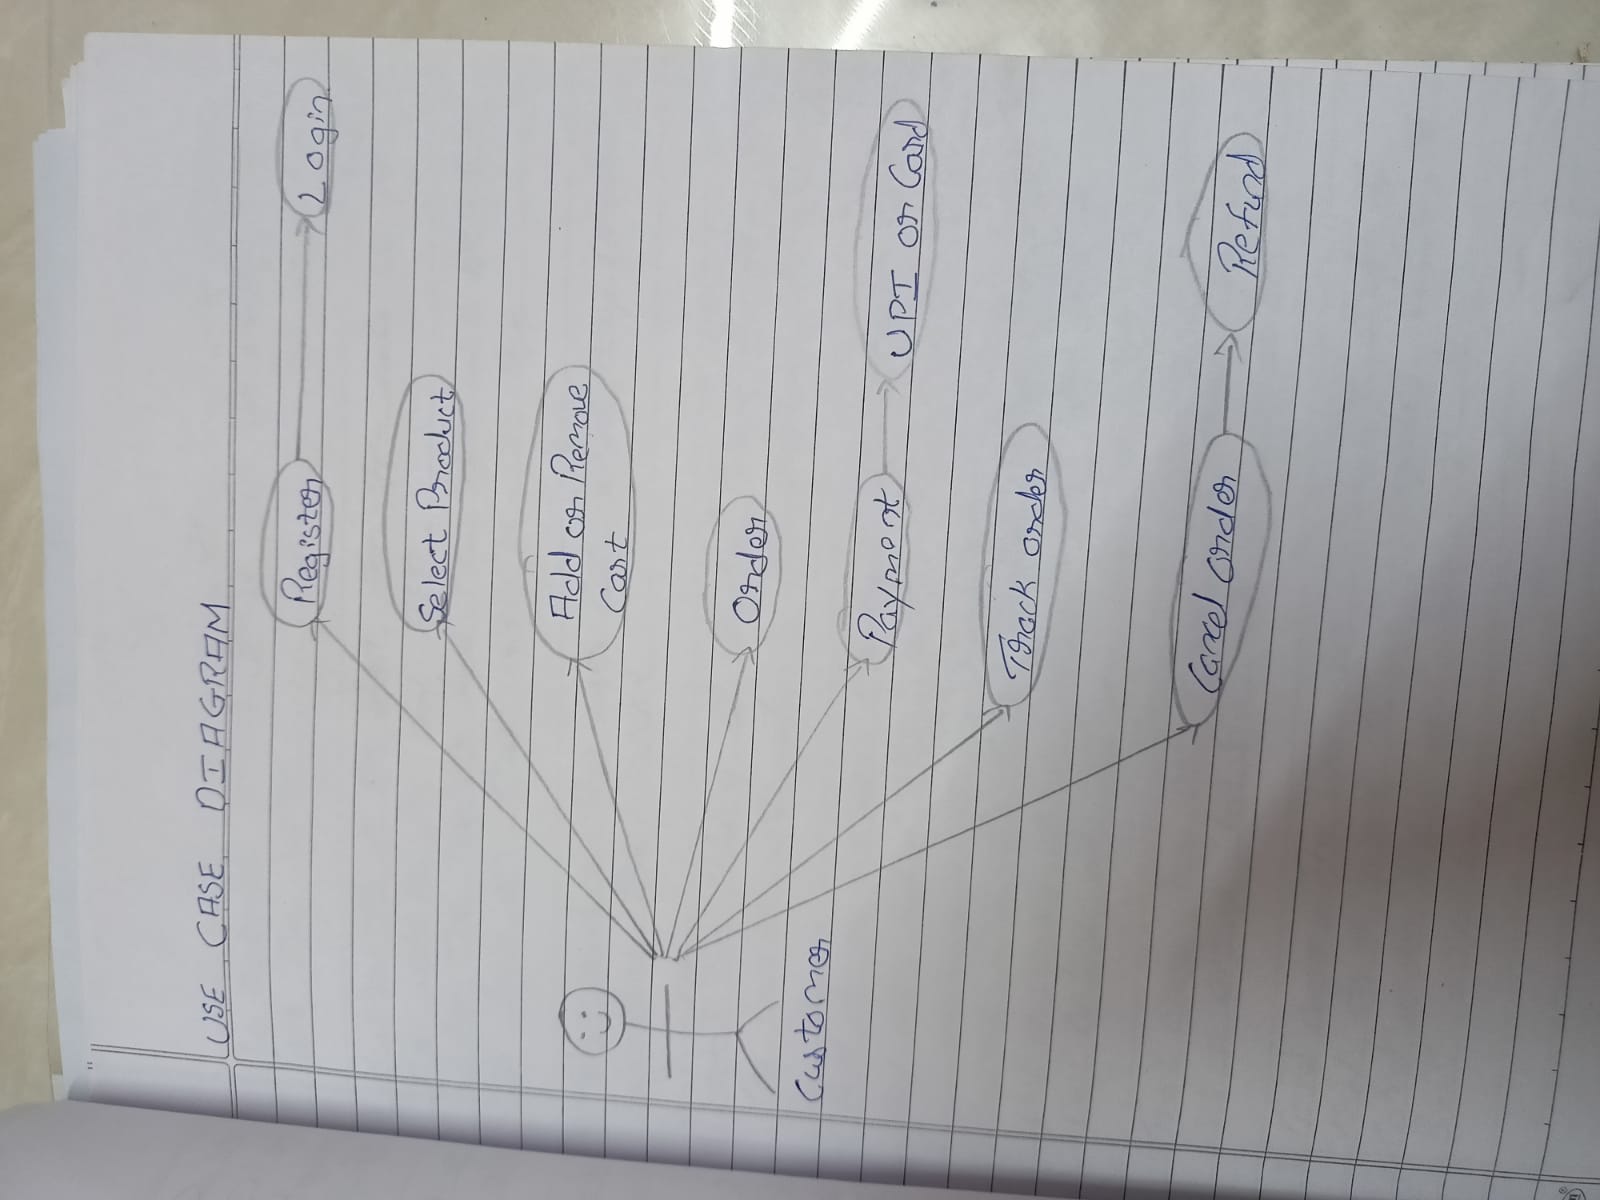 USE CASE DIAGRAM
Register
Login
Select Product
Add or Remove
Cart
Order
Customer
Payment
UPI or Card
Track order
Cancel order
Refund